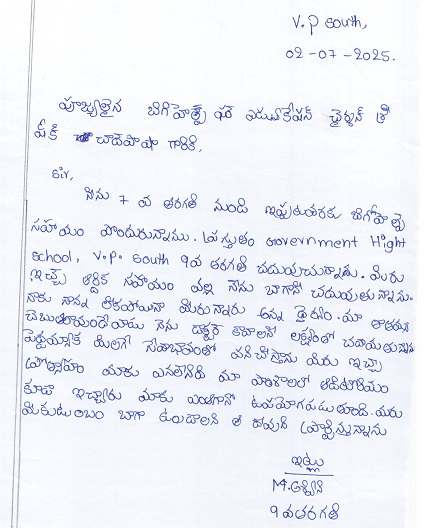 V.P South,
02-07-2025.
పూజ్యులైన బిగిహెల్ప్ ఫర్ ఎడ్యుకేషన్ ఛైర్మన్ శ్రీ
షేక్ చాదెపాషా గారికి,
Sir,
నేను 7 వ తరగతి నుండి ఇప్పటివరకు బిగిహెల్ప్
సహాయం పొందుచున్నాను. ప్రస్తుతం Government Hight
school, V.P. South 9వ తరగతి చదువుచున్నాను. మీరు
ఇచ్చే ఆర్థిక సహాయం వల్ల నేను బాగానే చదువుతున్నాను.
నాకు నాన్న లేకపోయినా మీరున్నారు అన్న ధైర్యం. మా
నేను డాక్టర్ కావాలనే లక్ష్యంతో చదువుతున్నాను
పెద్దయ్యాక మీలాగే సేవాభావంతో పని చేస్తాను మీరు ఇచ్చిన
ప్రోత్సాహం మాకు మా పాఠశాలలో
కూడా ఇచ్చారు మాకు ఎంతగానో ఉపయోగపడుతుంది. మీరు
మీకుటుంబం బాగా ఉండాలని ఆ దేవుని ప్రార్థిస్తున్నాను
ఇట్లు
M. అశ్విని
9 వ తరగతి